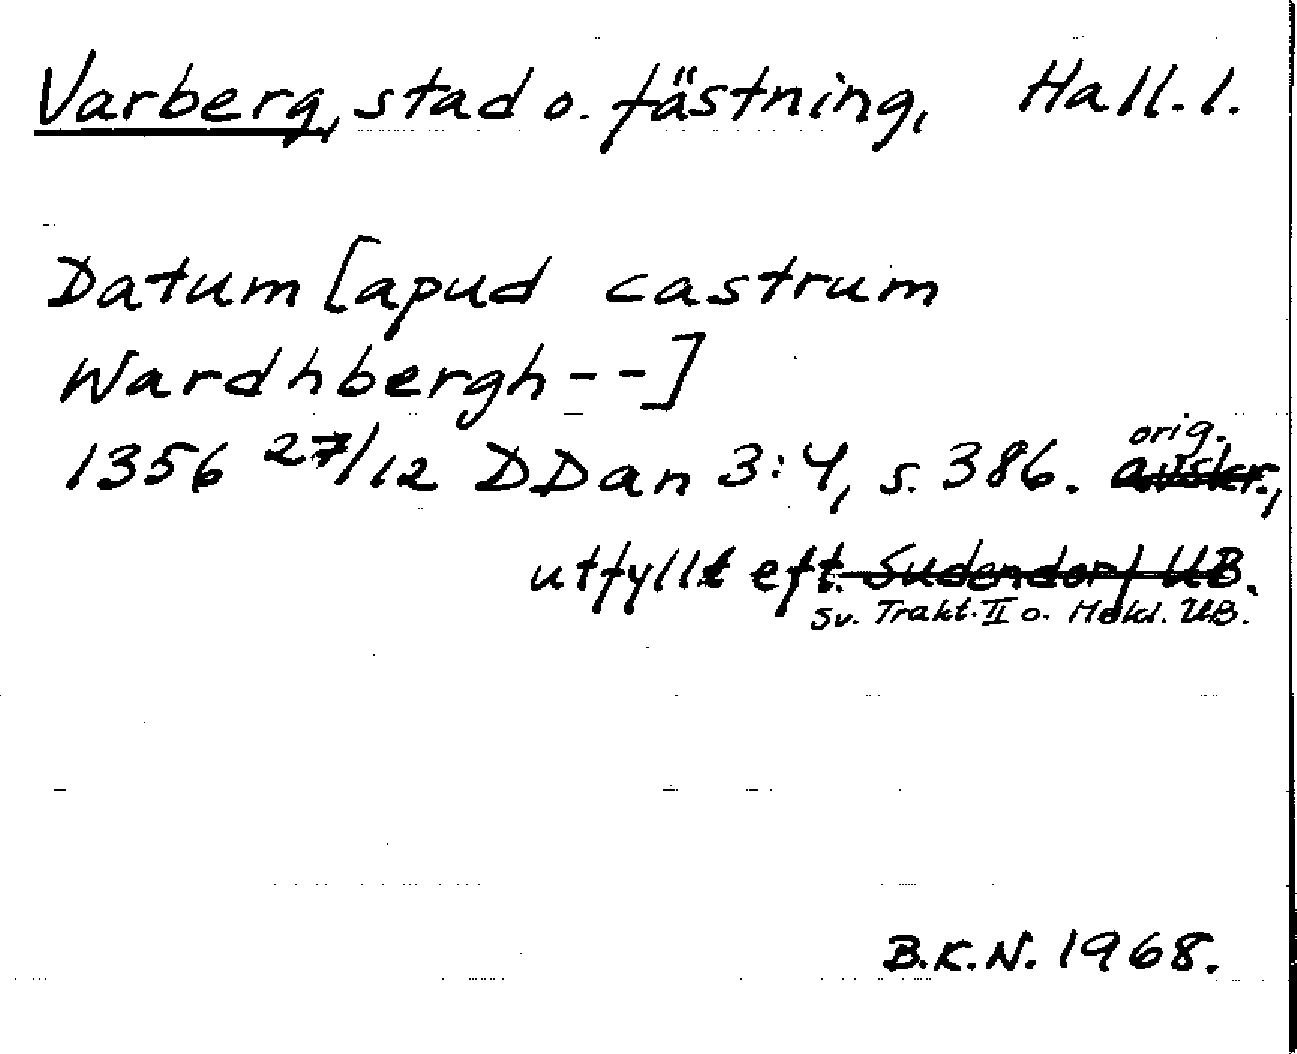 Varberg, stad o. fästning, Hall. l.
Datum [apud castrum
Wardhbergh--]
1356 27/12 DDan 3:4, s. 386. orig. avskr.,
utfyllt eft. Sudendorf UB.
Sv. Trakt. II o. Mekl. UB.
B.K.N. 1968.